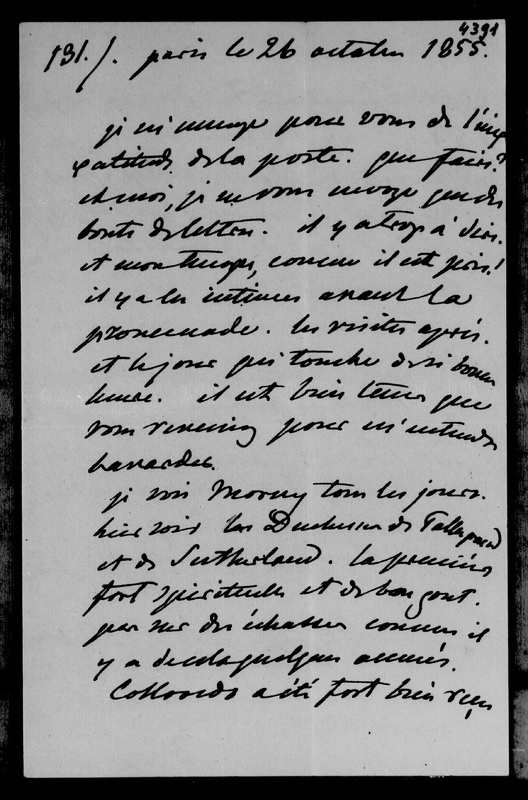 4391
131./. paris le 26 octobre 1855.
je m'enrage pour vous de l'inex
actitude de la poste. que faire?
et moi, je ne vous envoye que des
bouts de lettres. il y a trop à dire.
et mon temps, comme il est pris!
il y a les intimes avant la
promenade. les visites après.
et le jour qui tombe de si bonne
heure. il est bien tems que
vous reveniez pour m'entendre
bavarder.
je vois Morny tous les jours.
hier soir les Duchesses de Talleyrand
et de Sutherland. la première
fort spirituelle et de bon gout.
pas sur des échasses comme il
y a de cela quelques années.
Colloredo a été fort bien reçu